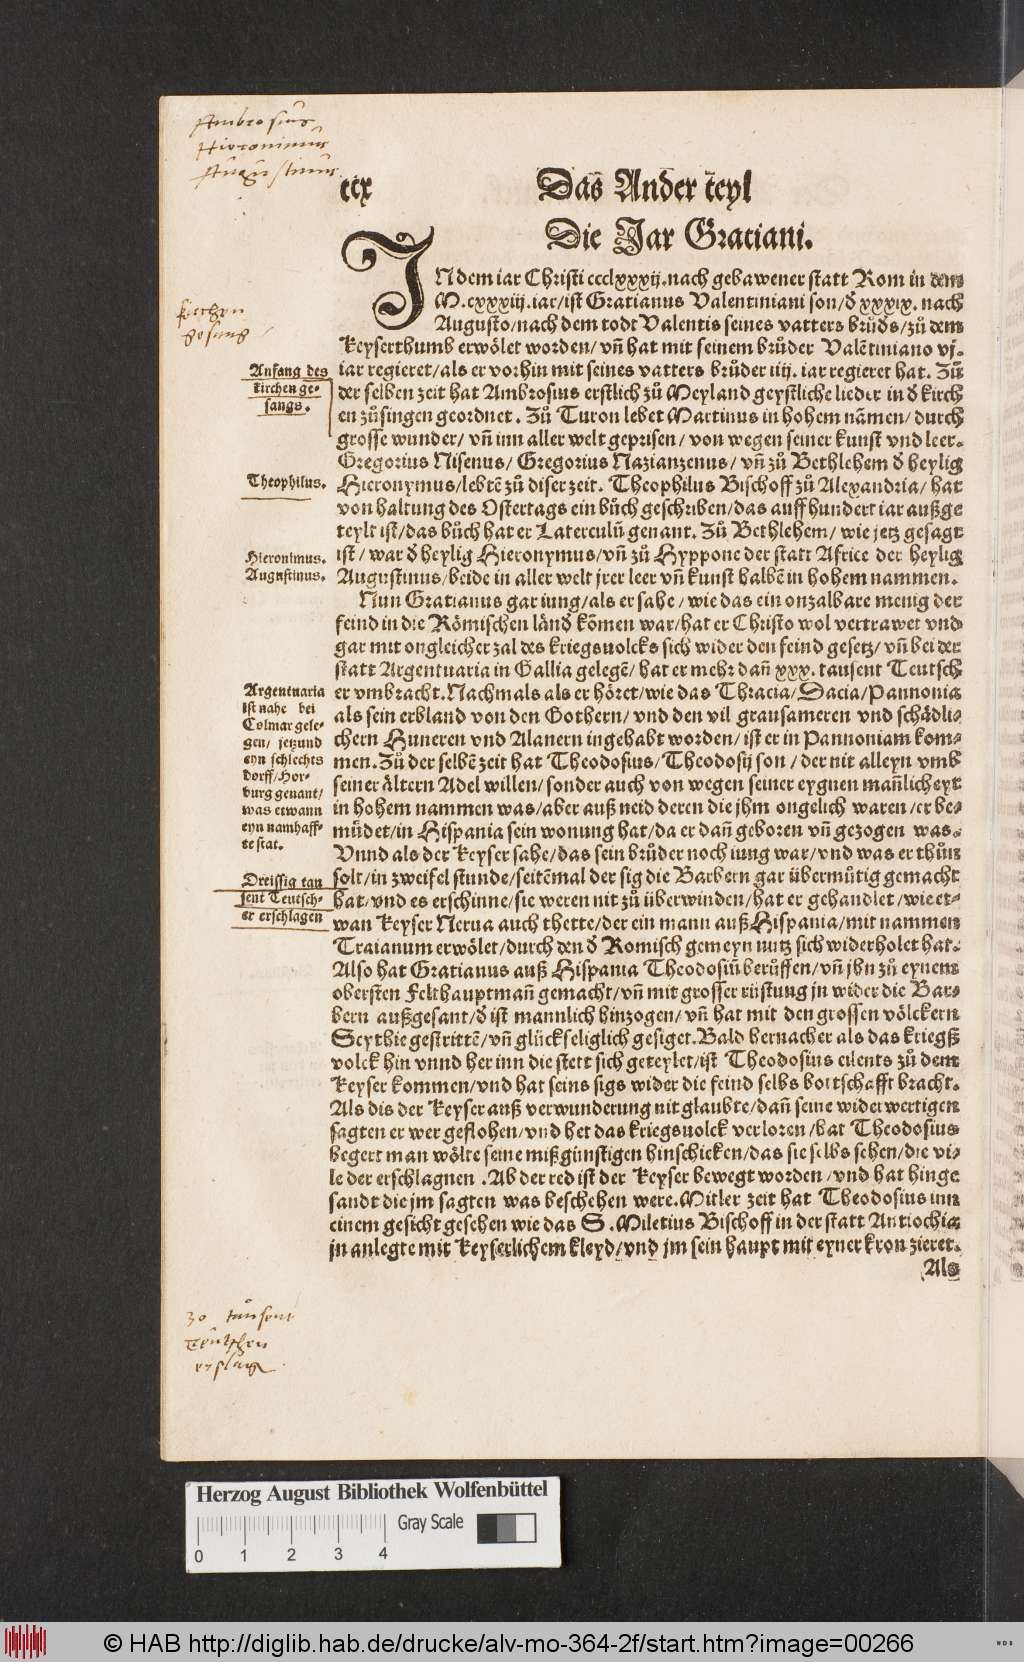 Ambrosius
Hieronimus
Augustinus
ccx
Das Ander teyl
Die Jar Gratiani.
JN dem iar Christi ccclxxxij. nach gebawener statt Rom in dem
M.cxxxiij. iar/ist Gratianus Valentiniani son/ď xxxix. nach
Augusto/nach dem todt Valentis seines vatters brůďs/zů dem
Keyserthumb erwölet worden/ vñ hat mit seinem brůder Valētiniano vj.
iar regieret/als er vorhin mit seines vatters brůder iiij. iar regieret hat. Zů
der selben zeit hat Ambrosius erstlich zů Meyland geystliche lieder in ď kirch
en zůsingen geordnet. Zů Turon lebet Martinus in hohem nāmen/ durch
grosse wunder/ vñ inn aller welt geprisen/ von wegen seiner kunst vnd leer.
Gregorius Nisenus/ Gregorius Nazianzenus/ vñ zů Bethlehem ď heylig
Hieronymus/lebtē zů diser zeit. Theophilus Bischoff zů Alexandria/ hat
von haltung des Ostertags ein bůch geschriben/das auff hundert iar außge
teylt ist/das bůch hat er Laterculū genant. Zů Bethlehem/ wie jetz gesagt
ist/ war ď heylig Hieronymus/vñ zů Hyppone der statt Africe der heylig
Augustinus/beide in aller welt jrer leer vñ kunst halbē in hohem nammen.
Nun Gratianus gar iung/als er sahe/ wie das ein onzalbare menig der
feind in die Römischen länď kōmen war/hat er Christo wol vertrawet vnd
gar mit ongleicher zal des kriegsuolcks sich wider den feind gesetz/vñ bei der
statt Argentuaria in Gallia gelegē/ hat er mehr dañ xxx. tausent Teutsch
er vmbracht. Nachmals als er höret/wie das Thracia/Dacia/Pannonia
als sein erbland von den Gothern/ vnd den vil grausameren vnd schädli-
chern Huneren vnd Alanern ingehabt worden/ ist er in Pannoniam kom-
men. Zů der selbē zeit hat Theodosius/Theodosij son/ der nit alleyn vmb
seiner ältern Adel willen/sonder auch von wegen seiner eygnen mañlicheyt
in hohem nammen was/aber auß neid deren die jhm ongelich waren/er be-
můdet/in Hispania sein wonung hat/da er dañ geboren vñ gezogen was.
Vnnd als der Keyser sahe/das sein brůder noch iung war/vnd was er thůn
solt/in zweifel stunde/seitēmal der sig die Barbern gar übermůtig gemacht
hat/vnd es erschinne/sie weren nit zů überwinden/hat er gehandlet/wie et-
wan Keyser Nerua auch thette/der ein mann auß Hispania/mit nammen
Traianum erwölet/durch den ď Romisch gemeyn nutz sich widerholet hat.
Also hat Gratianus auß Hispania Theodosiū berůffen/vñ jhn zů eynem
obersten Felthauptmañ gemacht/vñ mit grosser rüstung jn wider die Bar-
bern außgesant/ď ist mannlich hinzogen/ vñ hat mit den grossen völckern
Scythie gestrittē/ vñ glückseliglich gesiget. Bald hernacher als das kriegß
volck hin vnnd her inn die stett sich geteylet/ist Theodosius eilents zů dem
Keyser kommen/vnd hat seins sigs wider die feind selbs bottschafft bracht.
Als dis der Keyser auß verwunderung nit glaubte/dañ seine widerwertigen
sagten er wer geflohen/vnd het das kriegsuolck verloren/hat Theodosius
begert man wölte seine mißgünstigen hinschicken/das sie selbs sehen/die vi-
le der erschlagnen. Ab der red ist der Keyser bewegt worden/vnd hat hinge
sandt die jm sagten was beschehen were. Mitler zeit hat Theodosius inn
einem gesicht gesehen wie das S. Miletius Bischoff in der statt Antiochia
jn anlegte mit Keyserlichem kleyd/vnd jm sein haupt mit eyner kron zieret.
Als
kirchen
gesang
Anfang des
kirchen ge-
sangs.
Theophilus.
Hieronimus.
Augustinus.
Argentuaria
ist nahe bei
Colmar gele-
gen/ jetzund
eyn schlechts
dorff/Hor-
burg genant/
was etwann
eyn namhaff-
te stat.
Dreissig tau
sent Teutsch-
er erschlagen
30 tausent
Teutschen
erschlag
Herzog August Bibliothek Wolfenbüttel
Gray Scale
0 1 2 3 4
© HAB http://diglib.hab.de/drucke/alv-mo-364-2f/start.htm?image=00266